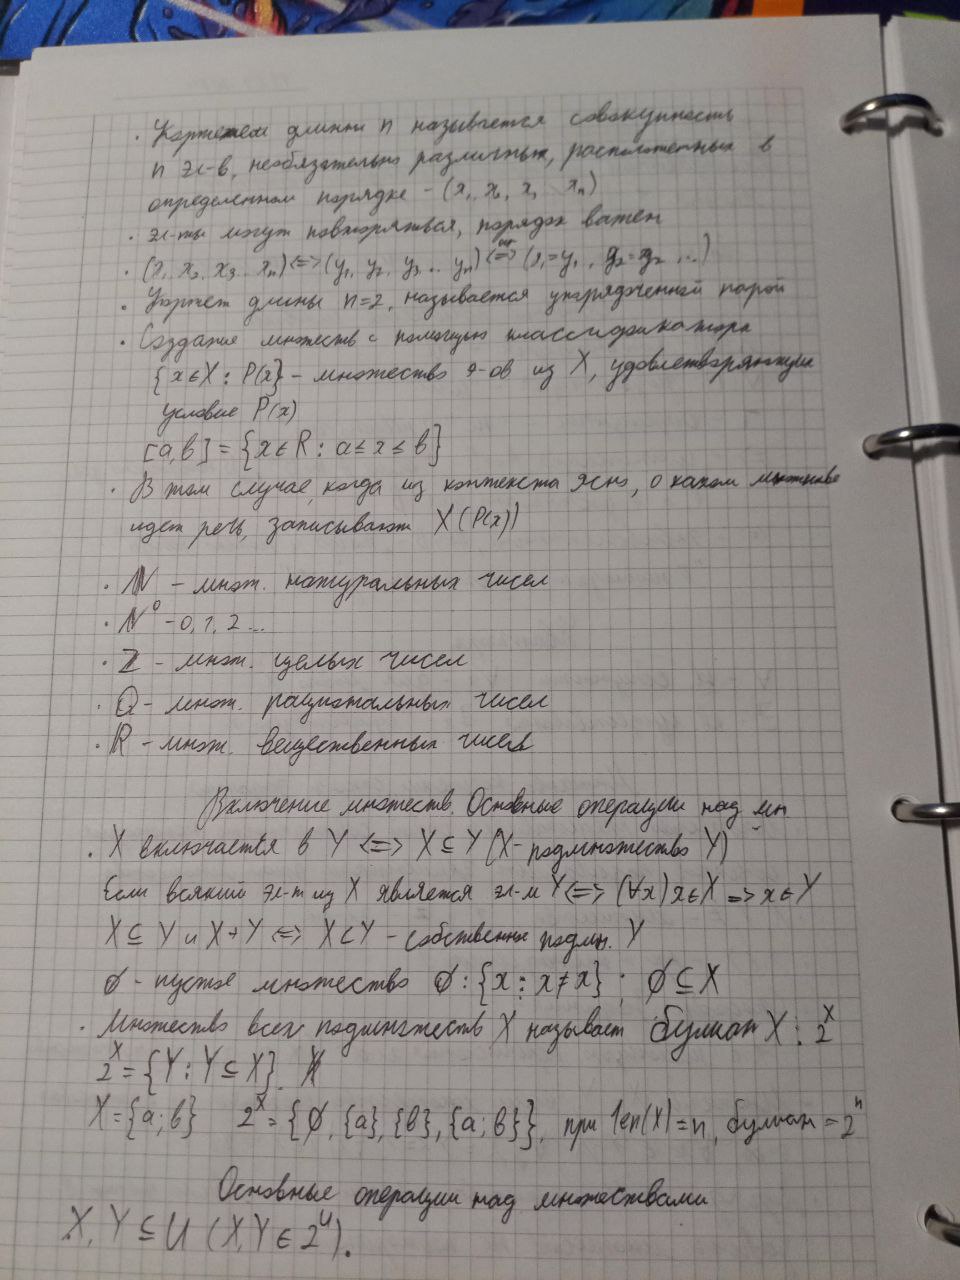 · Кортежем длины n называется совокупность
n эл-в, необязательно различных, расположенных в
определенном порядке - (x₁ x₂ x₃ xₙ)
· эл-ты могут повторяться, порядок важен
· (x₁ x₂ x₃ .. xₙ) <=> (y₁, y₂, y₃ .. yₙ) <=> (x₁=y₁, ...)
· Кортеж длины n=2, называется упорядоченной парой
· Создание множеств с помощью классификатора
{x∈X : P(x)} - множество э-ов из X, удовлетворяющих
условие P(x)
[a,b] = {x∈R : a≤x≤b}
· В том случае, когда из контекста ясно, о каком множестве
идет речь, записывают X(P(x))
· N - множ. натуральных чисел
· N⁰ - 0, 1, 2 ...
· Z - множ. целых чисел
· Q - множ. рациональных чисел
· R - множ. вещественных чисел
Включение множеств. Основные операции над мн
· X включается в Y <=> X ⊆ Y (X - подмножество Y)
Если всякий эл-т из X является эл-м Y <=> (∀x) x∈X => x∈Y
X ⊆ Y и X ≠ Y <=> X ⊂ Y - собственное подмн. Y
∅ - пустое множество ∅ : {x : x≠x} ; ∅ ⊆ X
· Множество всех подмножеств X называет булеан X : 2ˣ
2ˣ = {Y : Y ⊆ X}.
X = {a; b} 2ˣ = {∅, {a}, {b}, {a; b}}, при len(X) = n, булеан = 2ⁿ
Основные операции над множествами
X, Y ⊆ U (X, Y ∈ 2ᵁ).